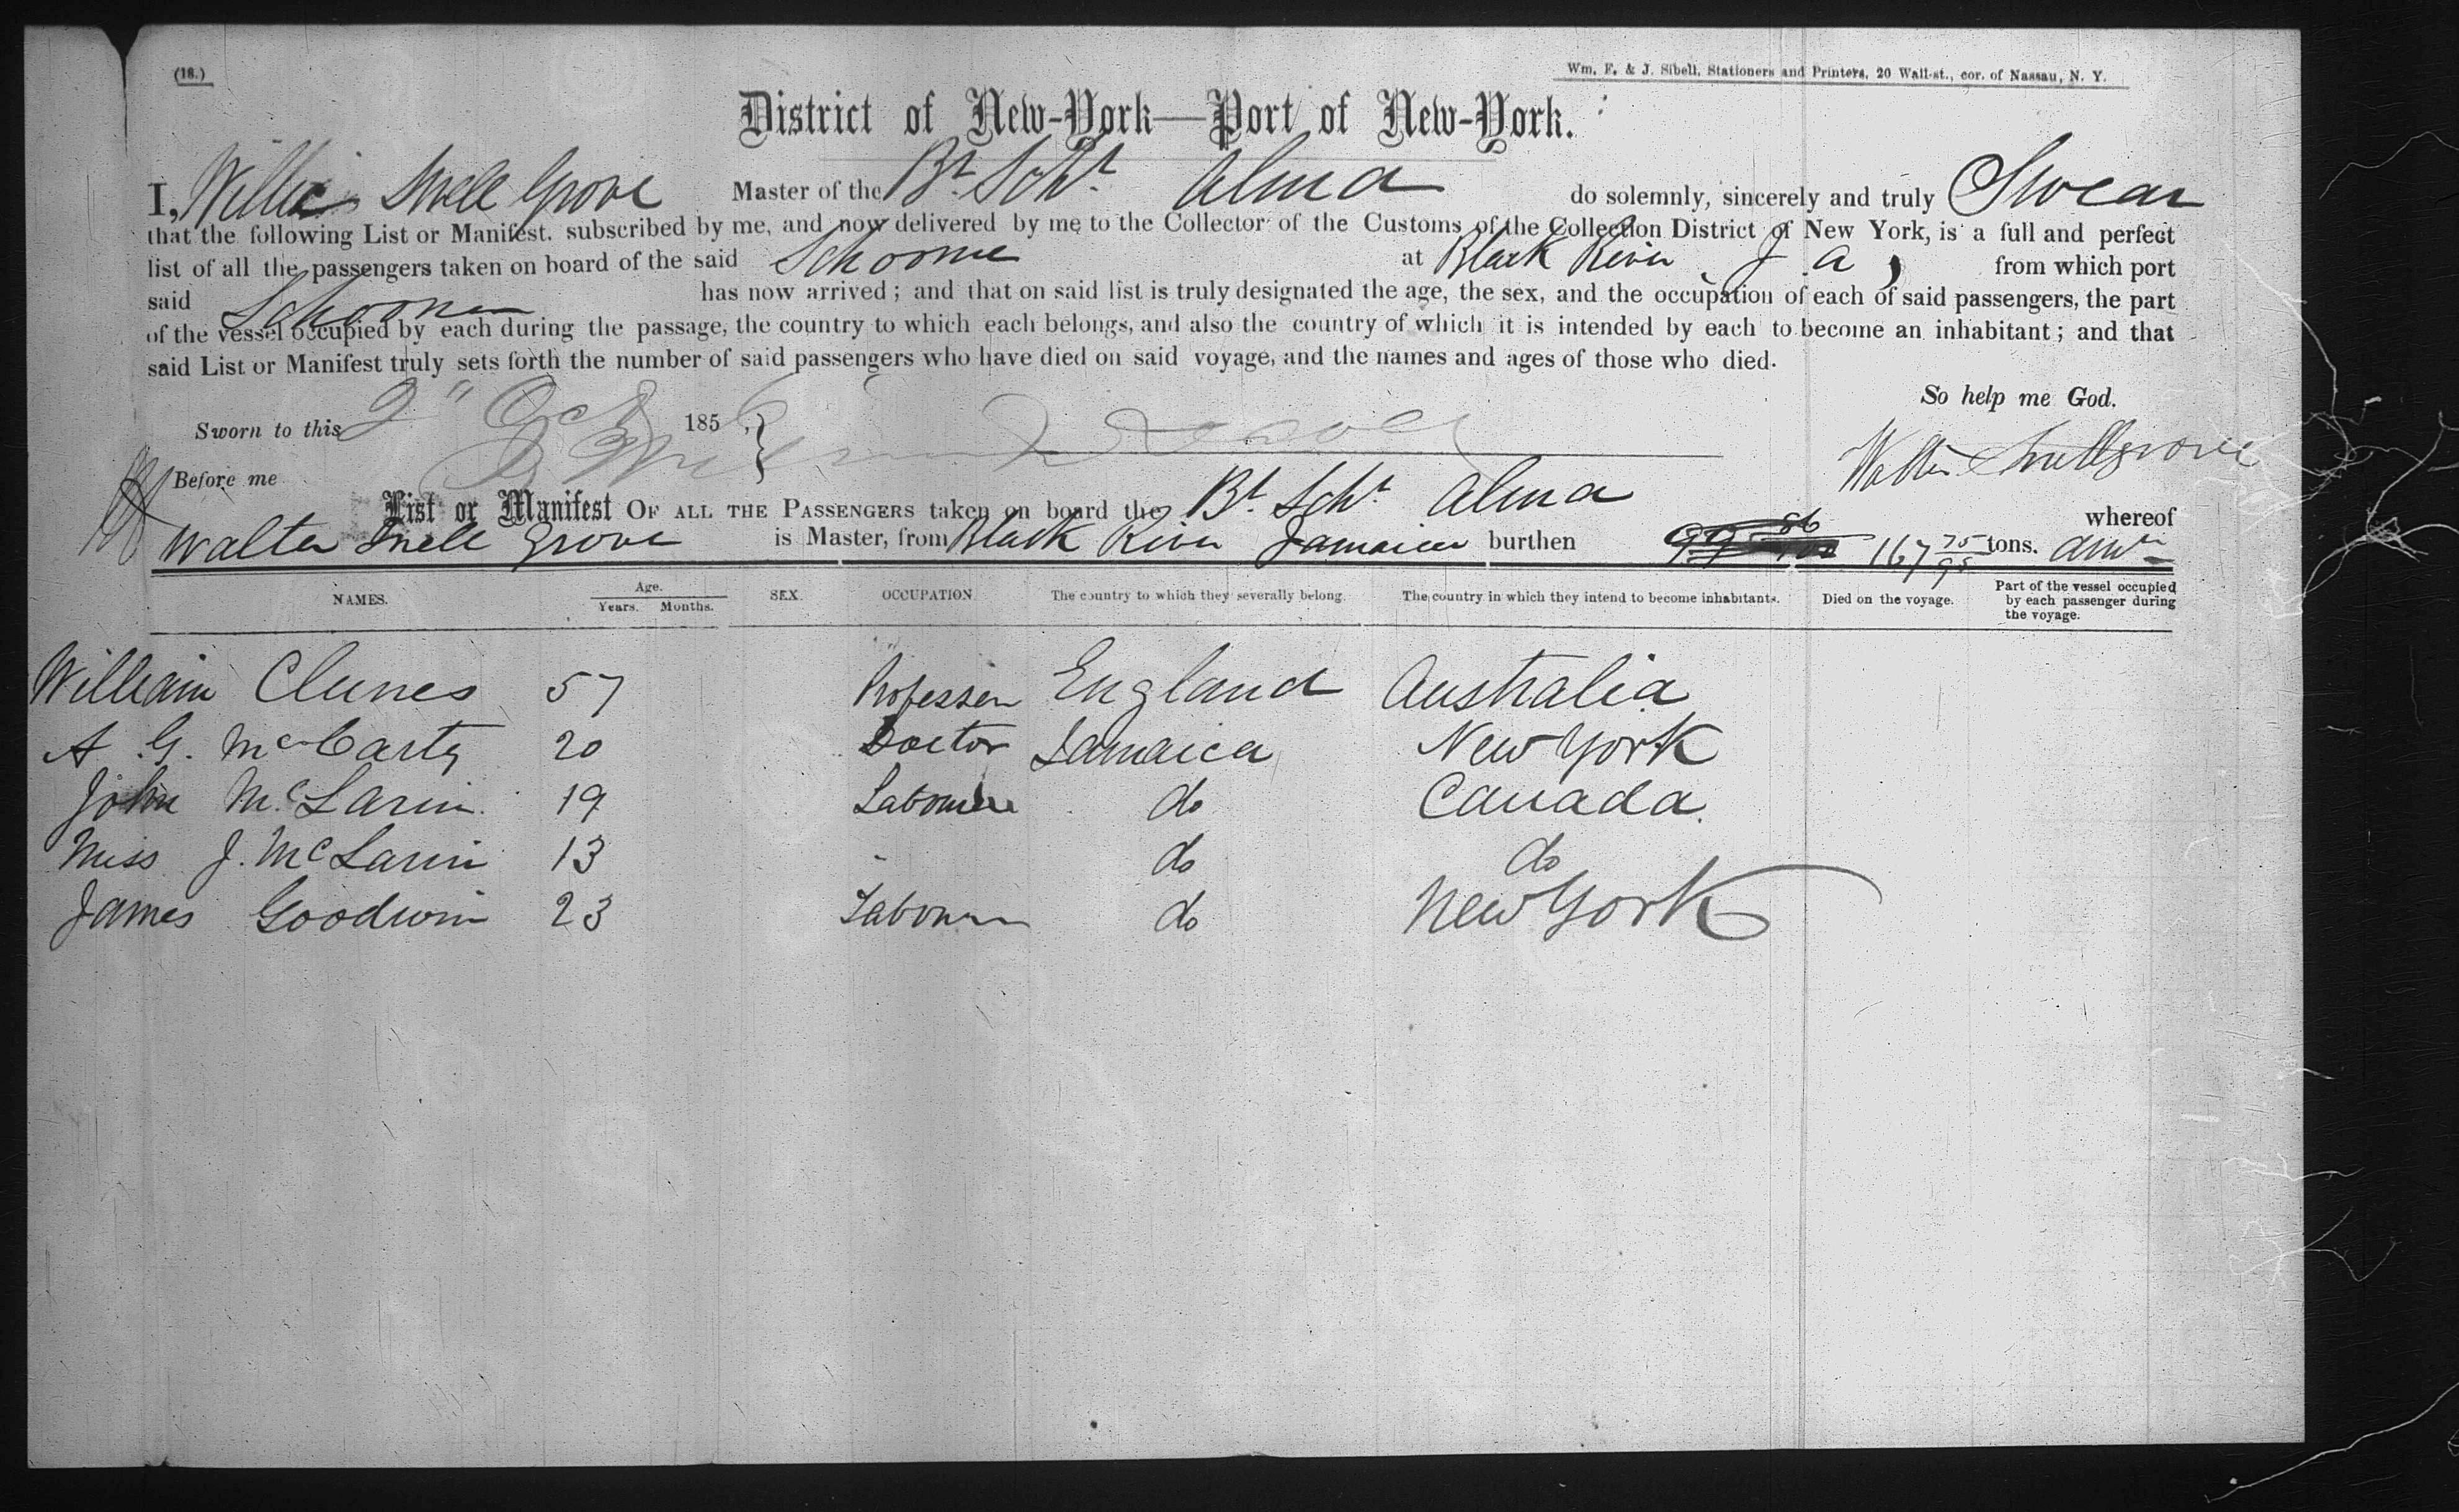 (18.)
Wm. F. & J. Sibell, Stationers and Printers, 20 Wall-st., cor. of Nassau, N. Y.
District of New-York—Port of New-York.
I, Snell Grove Master of the Br. Schr. Alma do solemnly, sincerely and truly Swear
that the following List or Manifest, subscribed by me, and now delivered by me to the Collector of the Customs of the Collection District of New York, is a full and perfect
list of all the passengers taken on board of the said Schooner at Black River, Ja, from which port
said Schooner has now arrived; and that on said list is truly designated the age, the sex, and the occupation of each of said passengers, the part
of the vessel occupied by each during the passage, the country to which each belongs, and also the country of which it is intended by each to become an inhabitant; and that
said List or Manifest truly sets forth the number of said passengers who have died on said voyage, and the names and ages of those who died.
So help me God.
Sworn to this 2" Oct 185
Walter Snellgrove
Before me
List or Manifest OF ALL THE PASSENGERS taken on board the Br. Schr. Alma whereof
Walter Snell Grove is Master, from Black River Jamaica burthen 167 75/95 tons.
NAMES. Age. Years. Months. SEX. OCCUPATION. The country to which they severally belong. The country in which they intend to become inhabitants. Died on the voyage. Part of the vessel occupied by each passenger during the voyage.
William Clunes 57 Professor England Australia
A G. McCarty 20 Doctor Jamaica New York
John McLarin 19 Labourer do Canada
Miss J. McLarin 13 - do do
James Goodwin 23 Labourer do New York